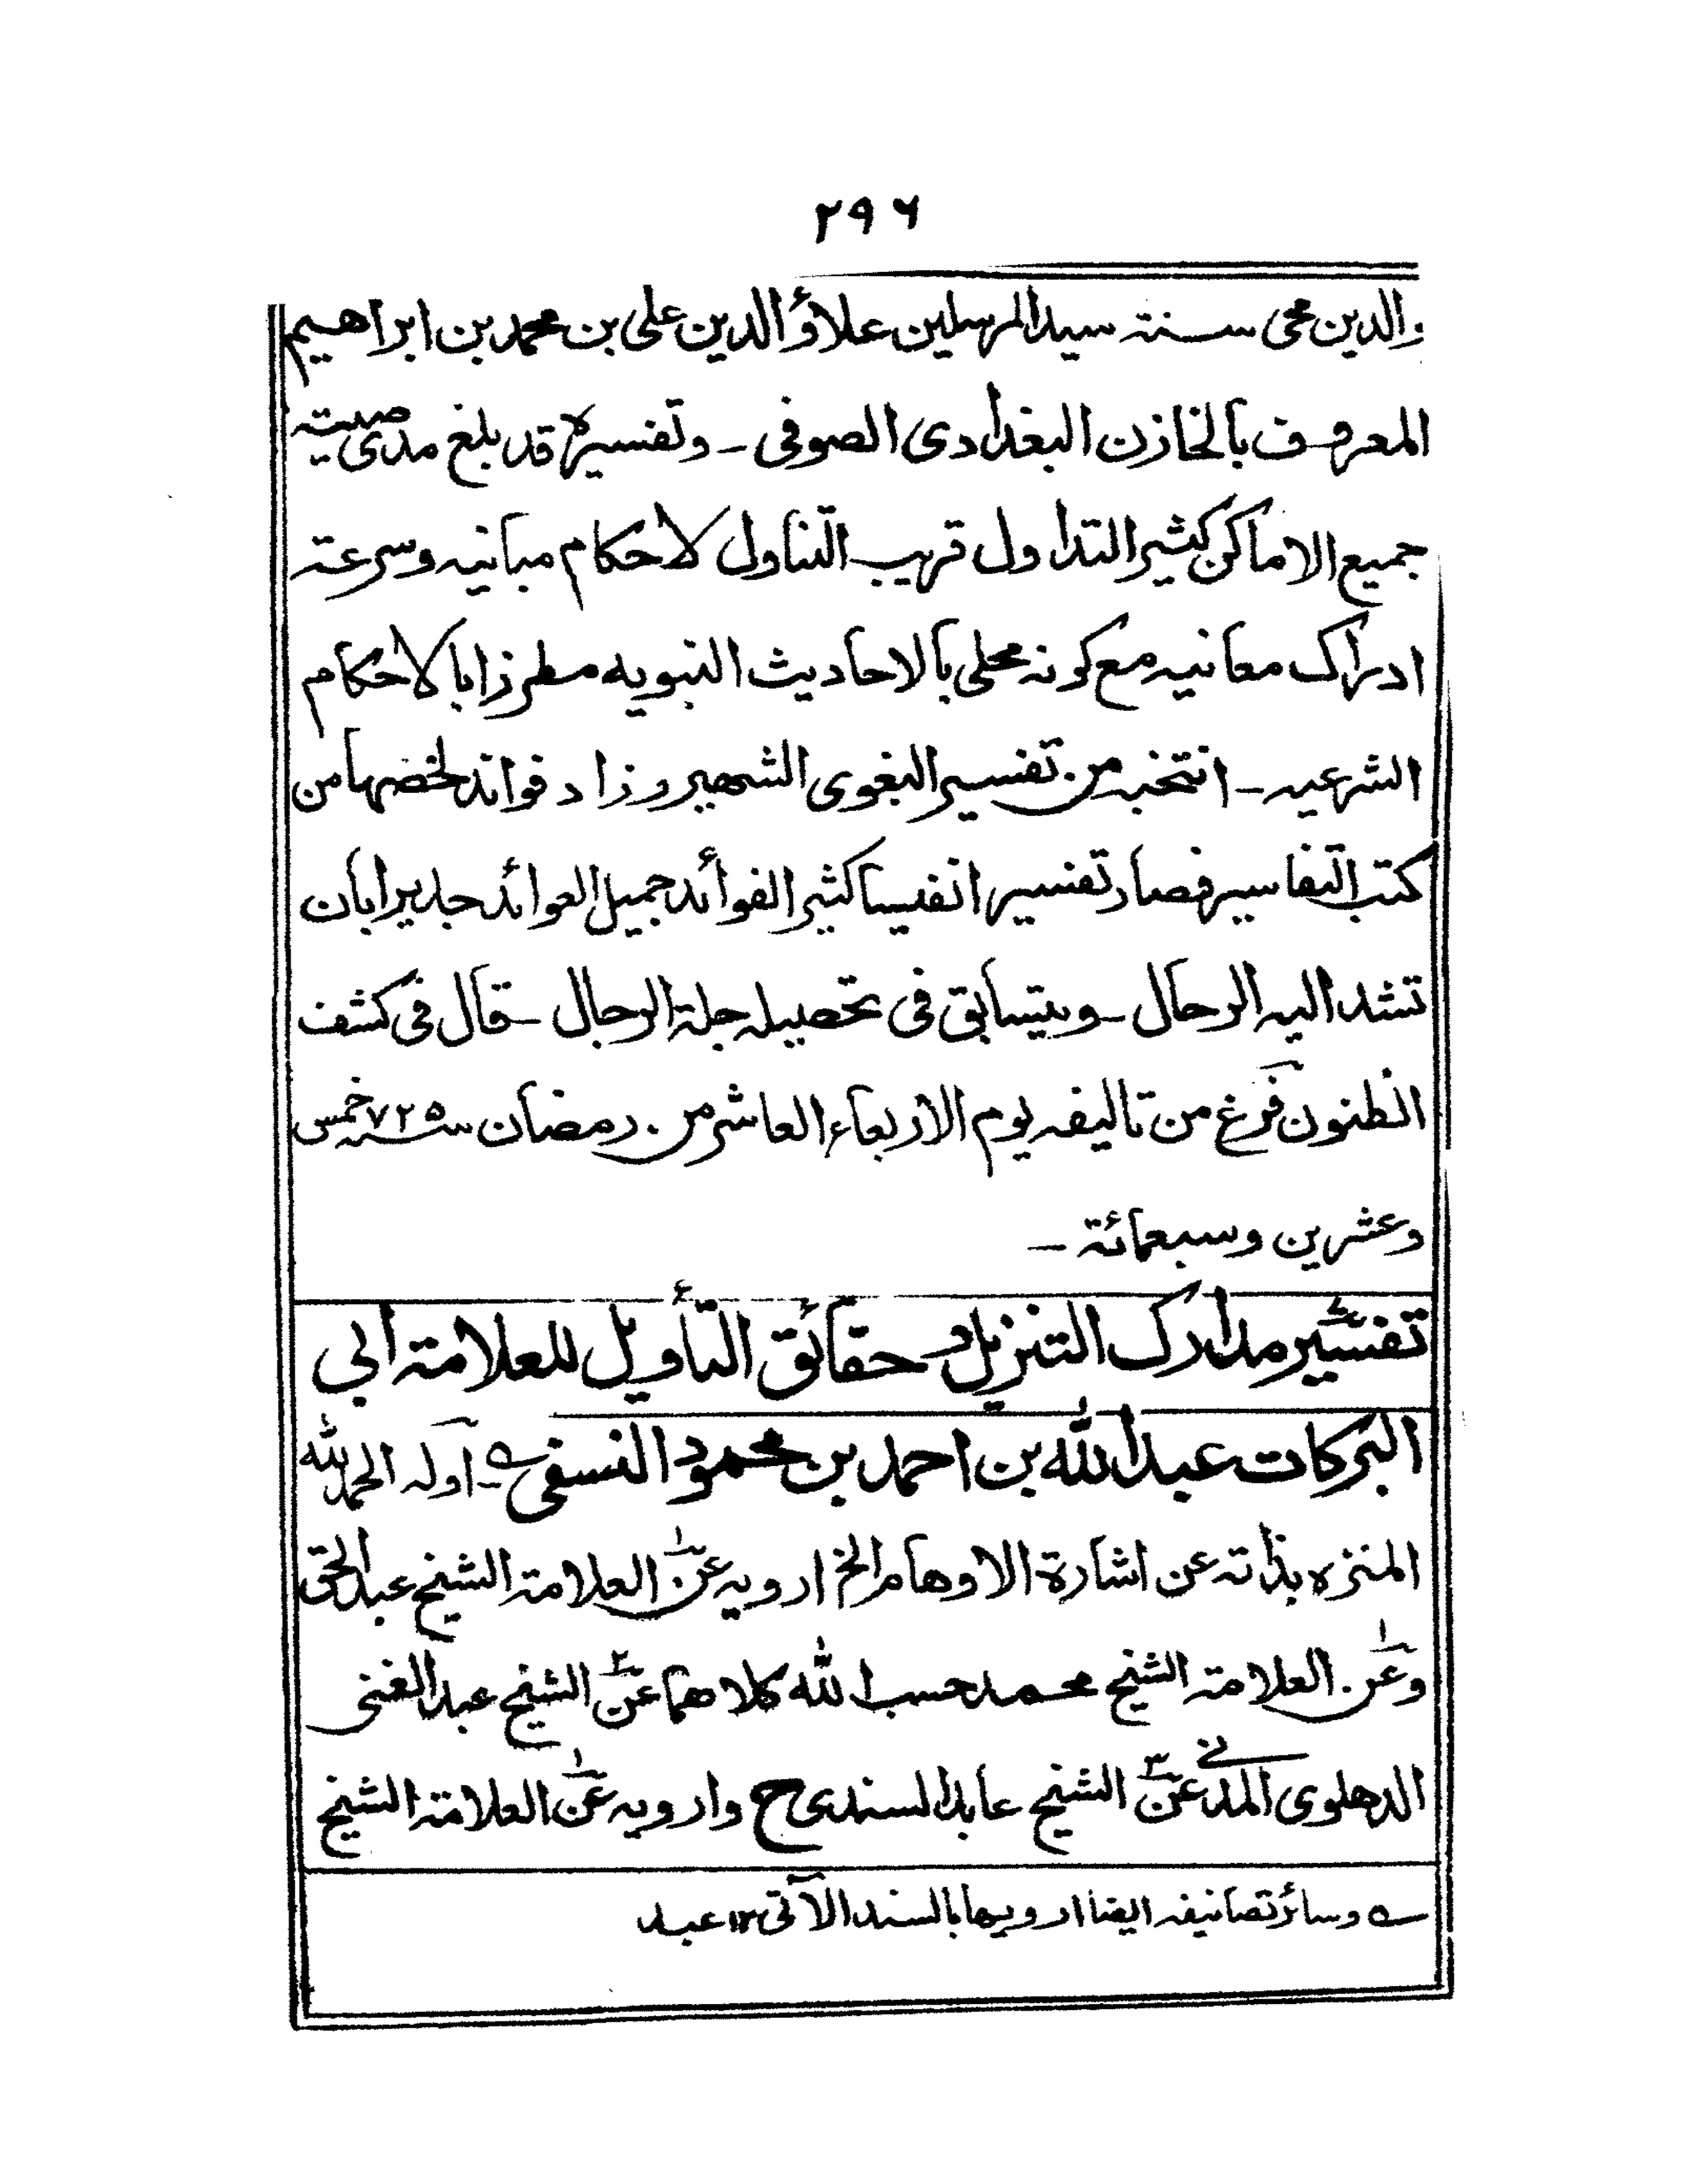 ۲۹۶
والدين محى سنة سيد المرسلين علاؤالدين على بن محمد بن ابراهيم
المعروف بالخازن البغدادى الصوفى ـ وتفسيره قد بلغ مدى صيته
جميع الاماكن كثير التداول قريب التناول لاحكام مبانيه وسرعة
ادراك معانيه مع كونه محلى بالاحاديث النبويه مطرزا بالاحكام
الشرعيه ـ انتخبه من تفسير البغوى الشهير وزاد فوائد لخصها من
كتب التفاسير فصار تفسيرا نفيسا كثير الفوائد جميل العوائد جديرا بان
تشد اليه الرحال ـ ويتسابق فى تحصيله جلة الرجال ـ قال فى كشف
الظنون فرغ من تاليفه يوم الاربعاء العاشر من رمضان سنة ۷۲۵ خمس
وعشرين وسبعمائة ـ
تفسير مدارك التنزيل وحقائق التأويل للعلامة ابي
البركات عبد الله بن احمد بن محمود النسفى ـ اوله الحمد لله
المنزه بذاته عن اشارة الاوهام الخ ارويه عن العلامة الشيخ عبد الحق
وعن العلامة الشيخ محمد حسب الله كلاهما عن الشيخ عبد الغنى
الدهلوى المدني عن الشيخ عابد السندى ح وارويه عن العلامة الشيخ
وسائر تصانيفه ايضا ارويها بالسند الآتى ۱۲ عبد